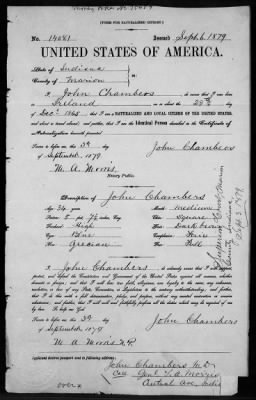 [FORM FOR NATURALIZED CITIZEN.]
No. 14081 Issued Sept. 6, 1879
UNITED STATES OF AMERICA.
State of Indiana
County of Marion
I, John Chambers, do swear that I was born in
Ireland on the 28th day
of Dec. 1845, that I am a NATURALIZED AND LOYAL CITIZEN OF THE UNITED STATES,
and about to travel abroad, and that I am the identical Person described in the Certificate of
Naturalization herewith presented.
Sworn to before me this 3d
day of September 1879 John Chambers
W. A. Morris
Notary Public.
Description of John Chambers
Age: 34 years Mouth: Medium
Stature: 5 feet 7½ inches, Eng. Chin: Square
Forehead: High Hair: Dark brown
Eyes: Blue Complexion: Fair
Nose: Grecian Face: Full
I, John Chambers, do solemnly swear that I will support,
protect, and defend the Constitution and Government of the United States against all enemies, whether
domestic or foreign; and that I will bear true faith, allegiance, and loyalty to the same, any ordinance,
resolution, or law of any State, Convention, or Legislature to the contrary notwithstanding; and further,
that I do this with a full determination, pledge, and purpose, without any mental reservation or evasion
whatsoever; and further, that I will well and faithfully perform all the duties which may be required of me
by law. So help me God.
Sworn to before me this 3d
day of September 1879 John Chambers
W. A. Morris N.P.
Applicant desires passport sent to following address:
John Chambers M.D.
Care Genl. T. A. Morris
Superior Court, Marion
County, Indiana
Sept 3 1879
over